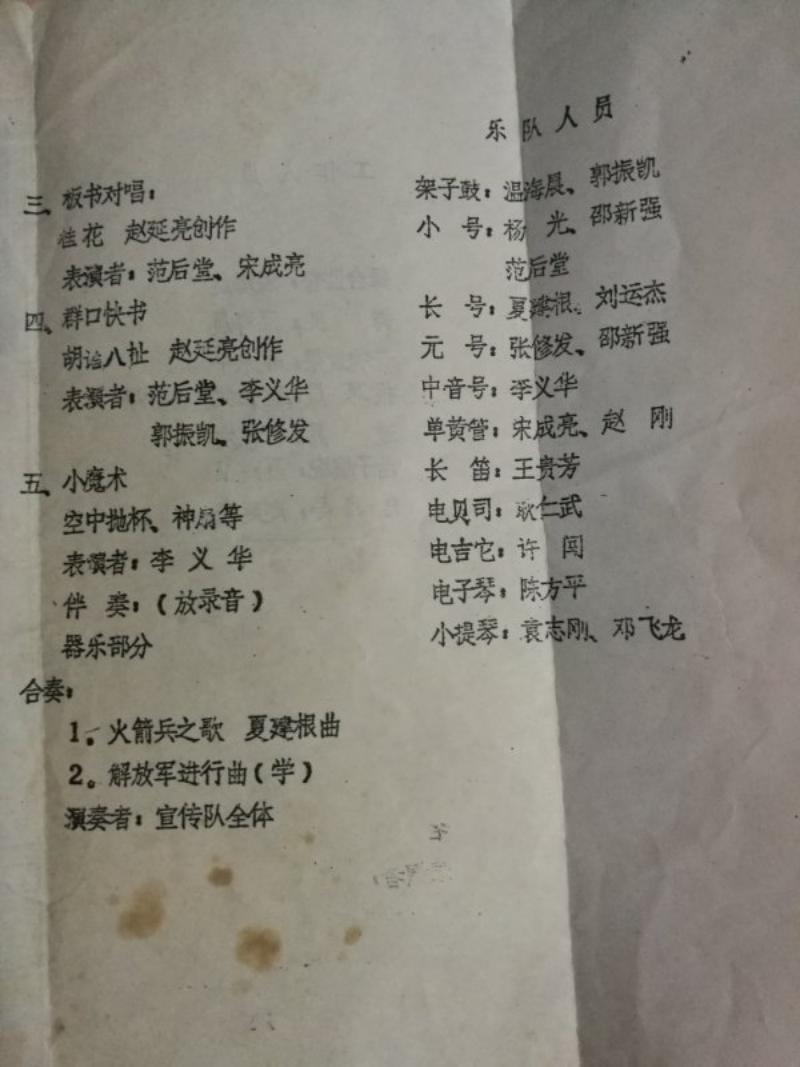 三、板书对唱：
桂花 赵延亮创作
表演者：范后堂、宋成亮
四、群口快书
胡诌八扯 赵延亮创作
表演者：范后堂、李义华
郭振凯、张修发
五、小魔术
空中抛杯、神扇等
表演者：李义华
伴奏：（放录音）
器乐部分
合奏：
1。火箭兵之歌 夏建根曲
2。解放军进行曲（学）
演奏者：宣传队全体
乐队人员
架子鼓：温海晨、郭振凯
小号：杨光、邵新强
范后堂
长号：夏建根、刘运杰
元号：张修发、邵新强
中音号：李义华
单黄管：宋成亮、赵刚
长笛：王贵芳
电贝司：耿仁武
电吉它：许闯
电子琴：陈方平
小提琴：袁志刚、邓飞龙